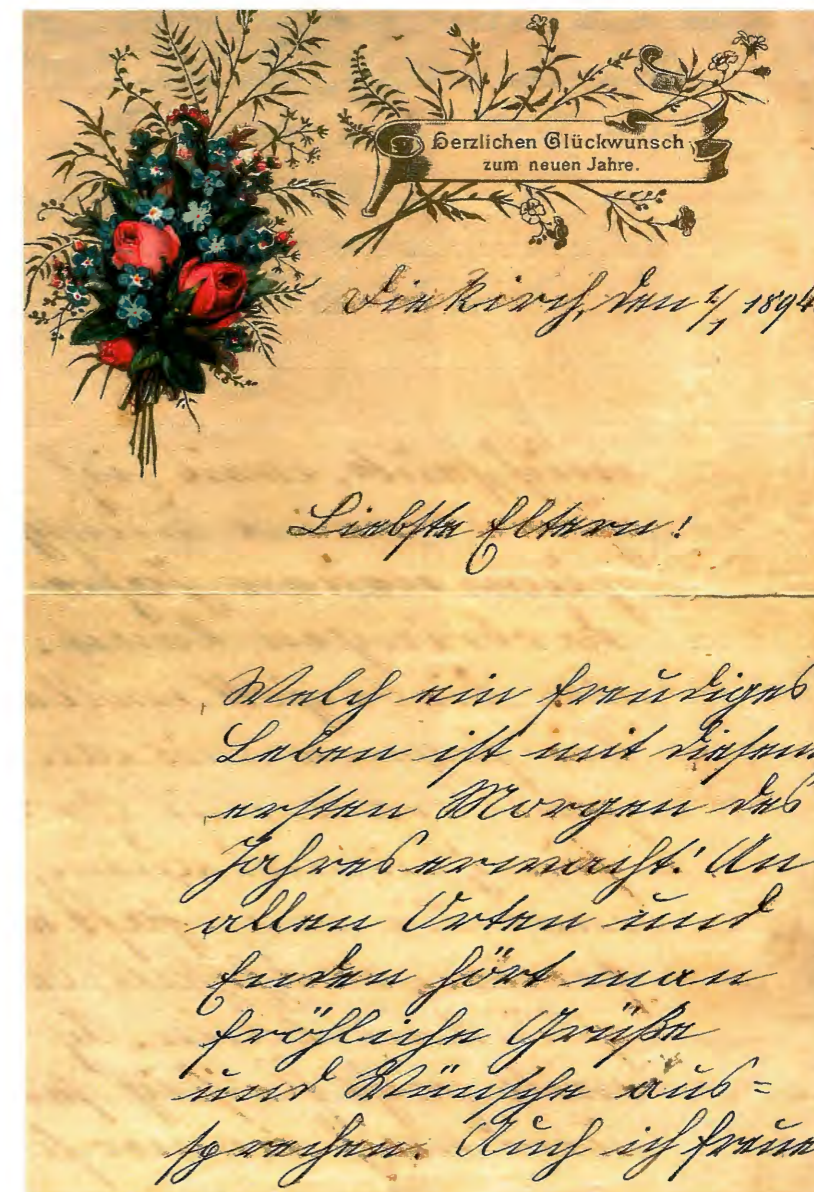 Herzlichen Glückwunsch
zum neuen Jahre.
Diekirch, den 1/1 1894
Liebste Eltern!
Welch ein freudiges
Leben ist mit diesem
ersten Morgen des
Jahres erwacht! An
allen Orten und
Enden hört man
fröhliche Grüße
und Wünsche aus=
sprechen. Auch ich freue